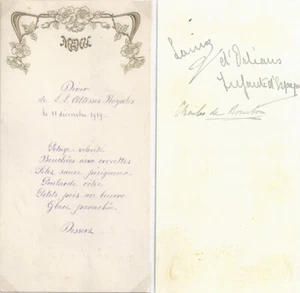 MENU
Diner
de L.L. Altesses Royales
le 11 décembre 1919.
Potage velouté
Bouchées aux crevettes
Filets sauce périgueux
Poularde rôtie
Petits pois au beurre
Glace
Dessert
Louise
d'Orléans
Infante d'Espagne
Charles de Bourbon